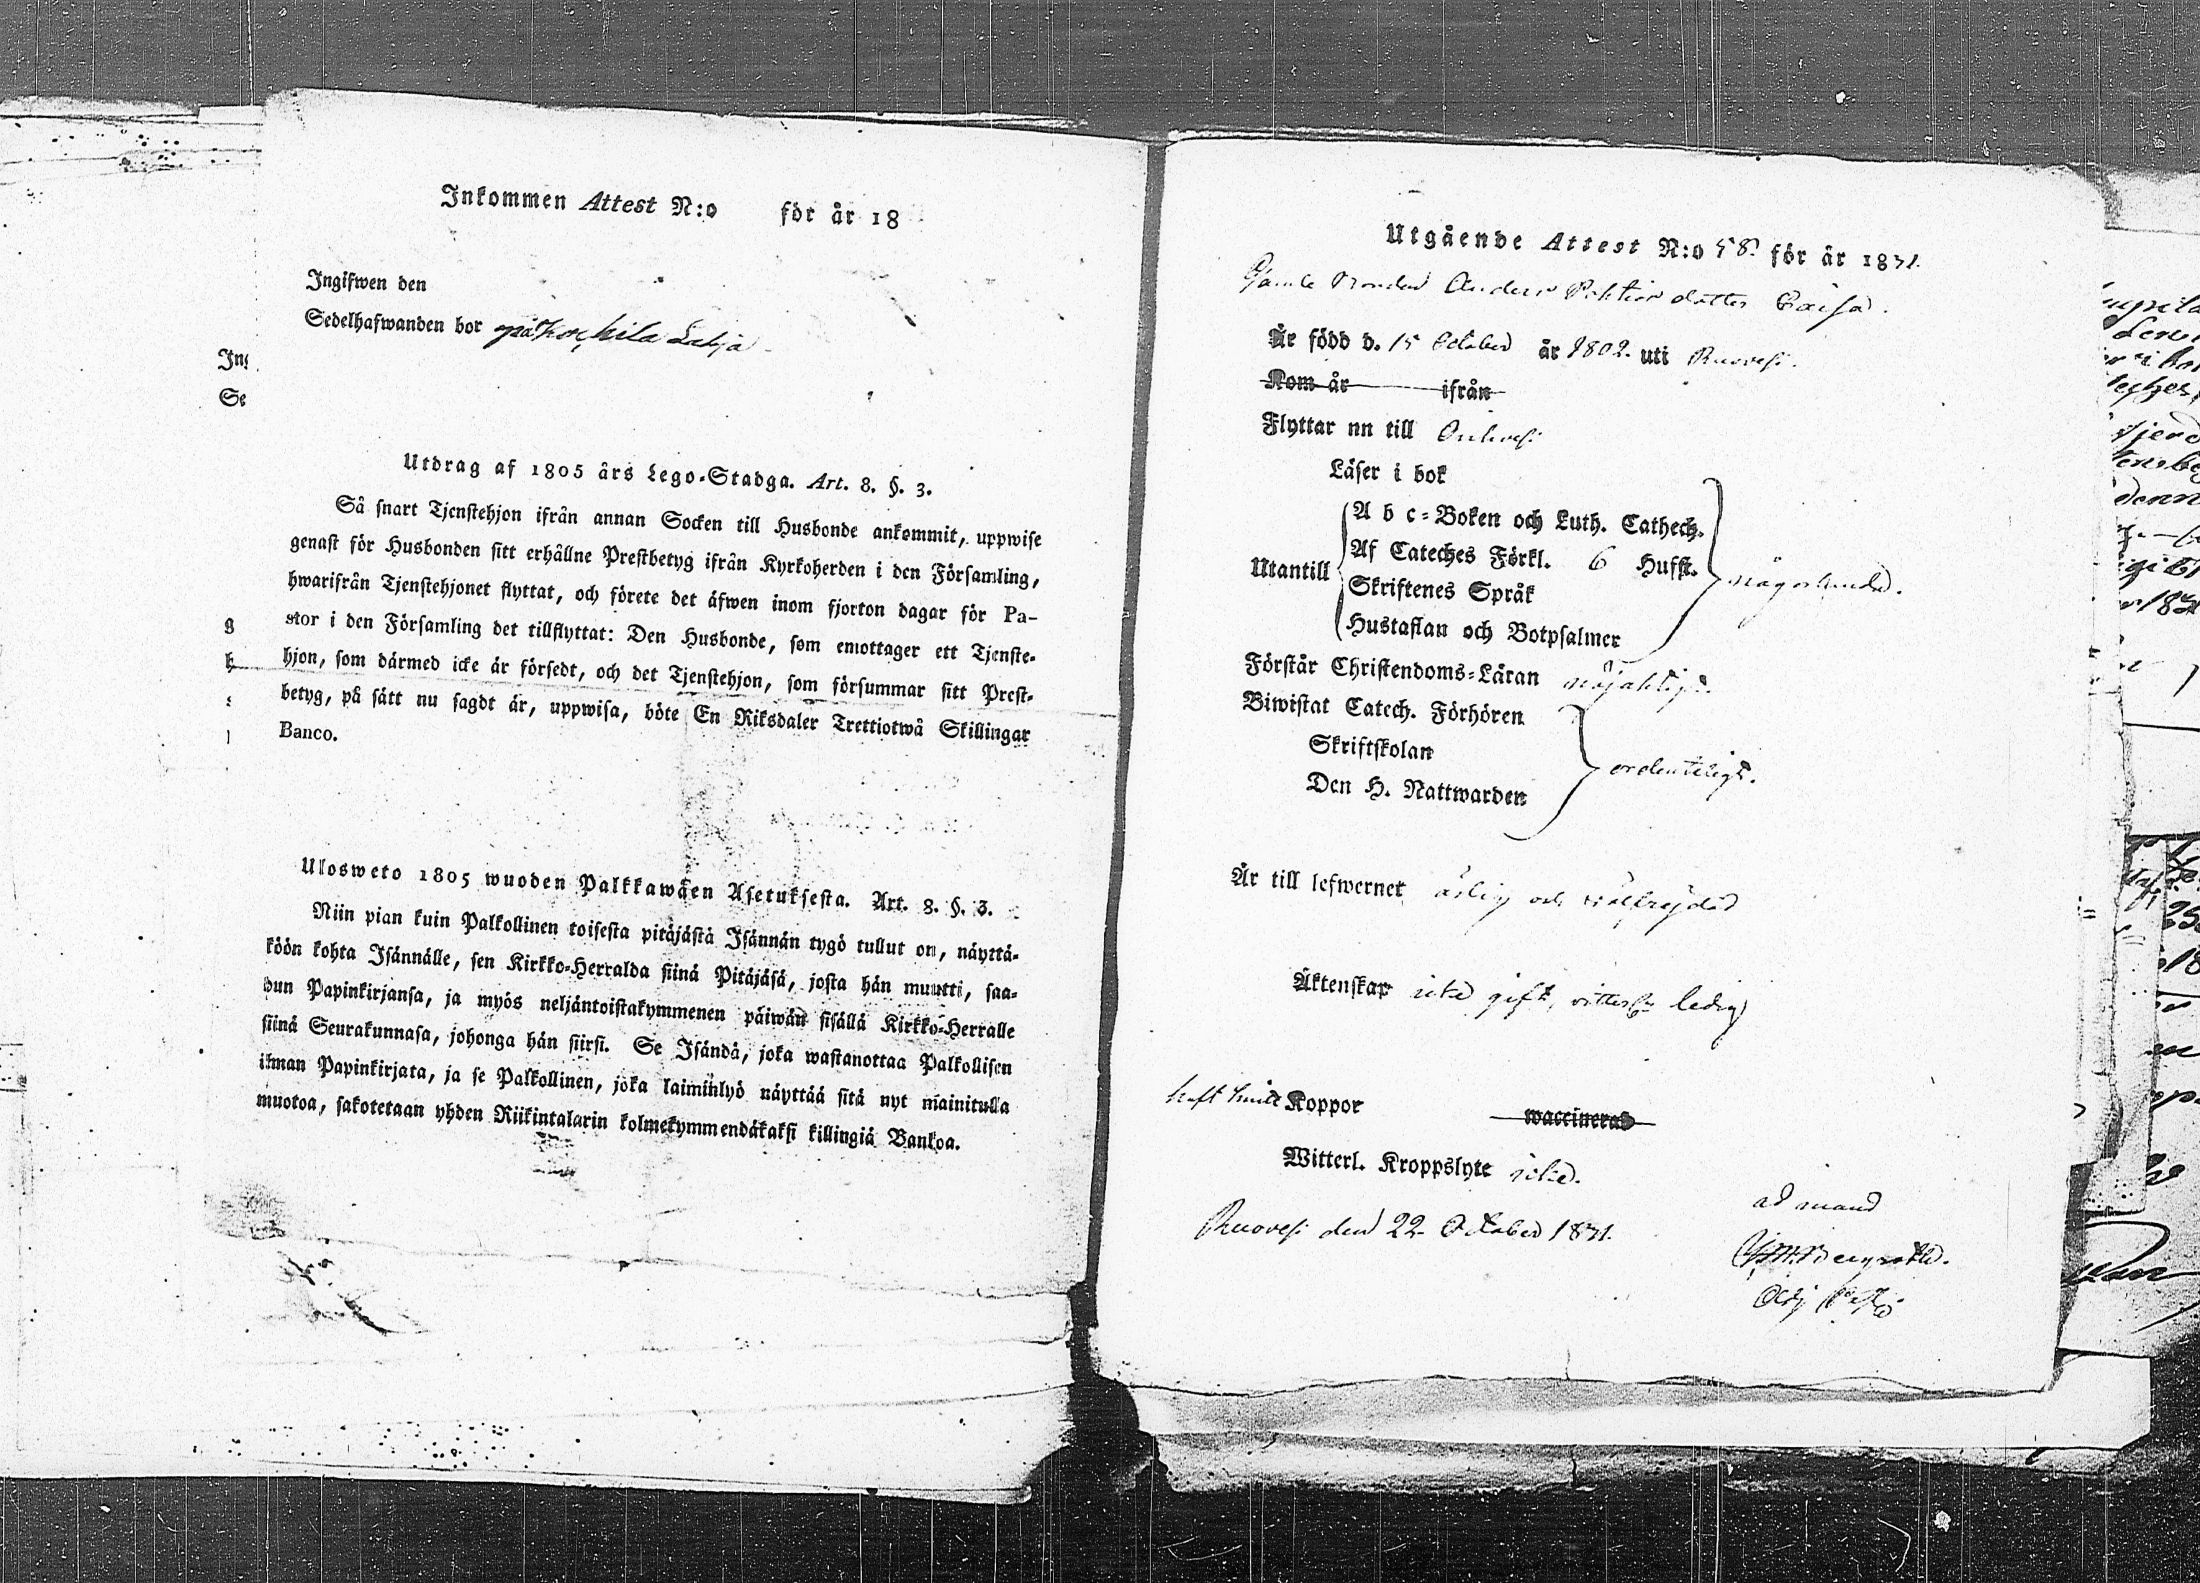 Inkommen Attest N:o för år 18
Ingifwen den
Sedelhafwanden bor på
Utdrag af 1805 års Lego-Stadga. Art. 8. §. 3.
Så snart Tjenstehjon ifrån annan Socken till Husbonde ankommit, uppwise
genast för Husbonden sitt erhållne Prestbetyg ifrån Kyrkoherden i den Församling,
hwarifrån Tjenstehjonet flyttat, och förete det äfwen inom fjorton dagar för Pa-
stor i den Församling det tillflyttat: Den Husbonde, som emottager ett Tjenste-
hjon, som därmed icke är försedt, och det Tjenstehjon, som försummar sitt Prest-
betyg, på sätt nu sagdt är, uppwisa, böte En Riksdaler Trettiotwå Skillingar
Banco.
Ulosweto 1805 wuoden Palkkawäen Asetuksesta. Art. 8. §. 3.
Niin pian kuin Palkollinen toisesta pitäjästä Isännän tygö tullut on, näyttä-
köön kohta Isännälle, sen Kirkko-Herralda siinä Pitäjäsä, josta hän muutti, saa-
dun Papinkirjansa, ja myös neljäntoistakymmenen päiwän sisällä Kirkko-Herralle
siinä Seurakunnasa, johonga hän siirsi. Se Isändä, joka wastanottaa Palkollisen
ilman Papinkirjata, ja se Palkollinen, joka laiminlyö näyttää sitä nyt mainitulla
muotoa, sakotetaan yhden Riikintalarin kolmekymmendäkaksi killingiä Bankoa.
In
Se
g
h
Utgående Attest N:o 58 för år 1831.
Gamle Bonden Anders dotter Caisa.
Är född d. 15 October år 1802. uti Ruovesi.
Kom år ifrån
Flyttar nn till Orihvesi
Läser i bok
Utantill
A b c-Boken och Luth. Cathech.
Af Cateches Förkl. 6 Hufst.
Skriftenes Språk
Hustaflan och Botpsalmer
någorlunda.
Förstår Christendoms-Läran nöjaktigt.
Biwistat Catech. Förhören
Skriftskolan
Den H. Nattwarden
ordenteligt.
Är till lefwernet ärlig och wälfrejdad
Äktenskap icke gift, ledig
haft Koppor waccinerad
Witterl. Kroppslyte icke.
Ruovesi den 22 October 1831.
ad mand
Adj